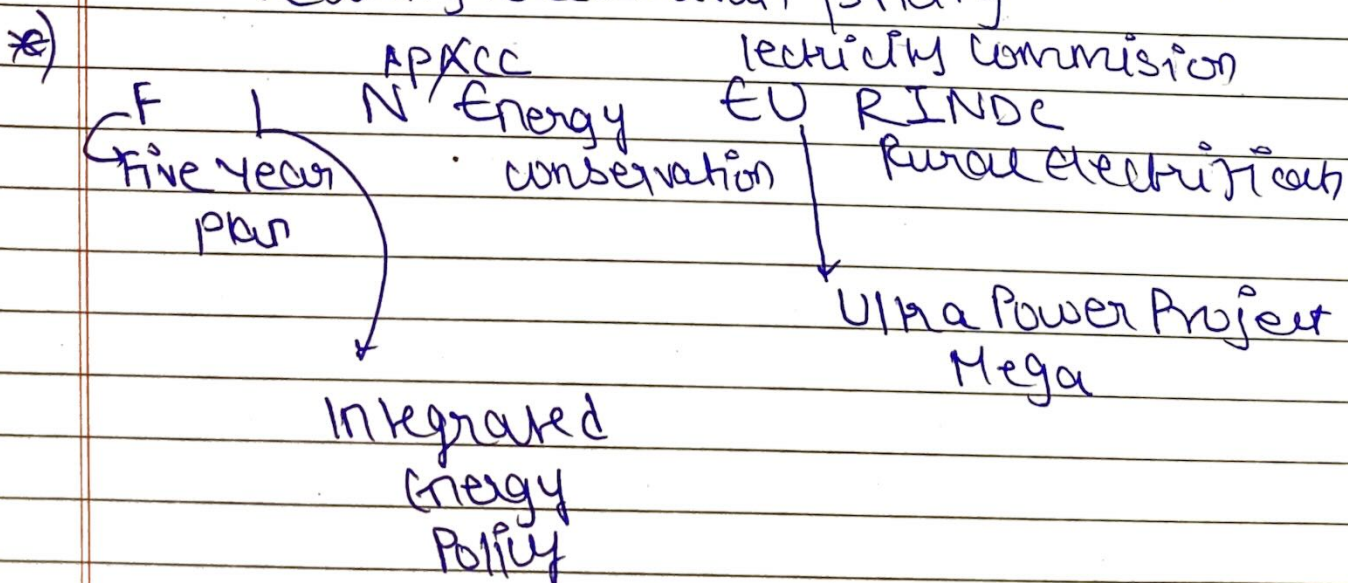 *)
APXCC lectricity Commision
F I N Energy EU RINDC
Five Year conservation Rural electrificath
plan
Ultra Power Project
Mega
Integrated
Energy
Policy